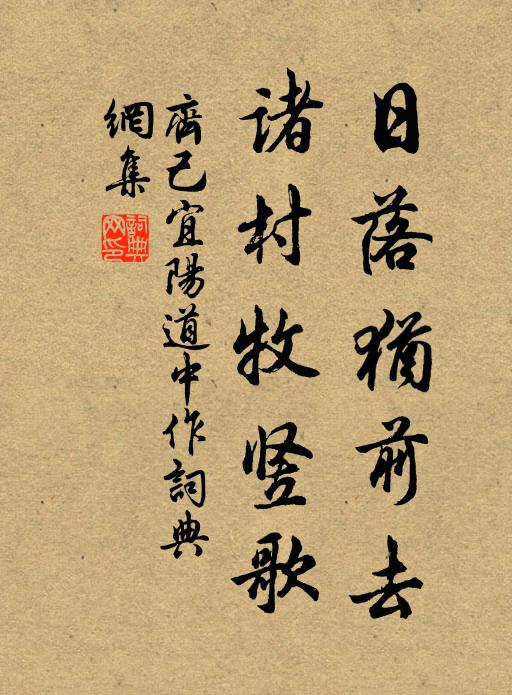 日落猶前去
諸村牧竖歌
齊己宜陽道中作詞典
網集
詞典網印